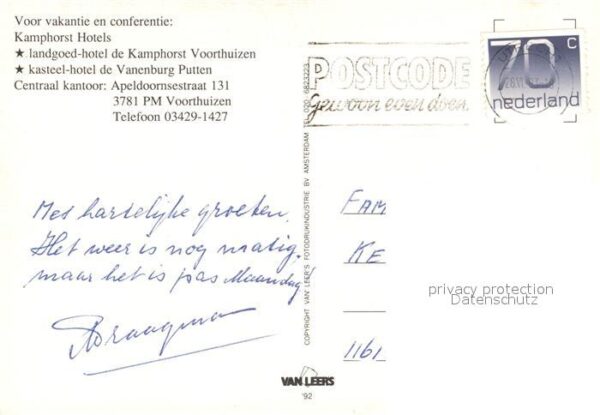 Voor vakantie en conferentie:
Kamphorst Hotels
★ landgoed-hotel de Kamphorst Voorthuizen
★ kasteel-hotel de Vanenburg Putten
Centraal kantoor: Apeldoornsestraat 131
3781 PM Voorthuizen
Telefoon 03429-1427
POSTCODE
Gewoon even doen
70 c
nederland
COPYRIGHT VAN LEER'S FOTODRUKINDUSTRIE BV AMSTERDAM TEL. 020 - 6823223
Met hartelijke groeten.
Het weer is nog matig.
maar het is pas Maandag!
FAM
KE
1161
privacy protection
Datenschutz
VAN LEERS
'92